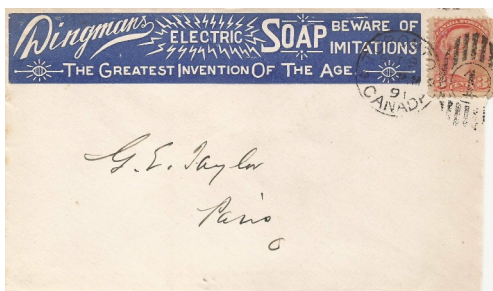 Dingmans ELECTRIC SOAP BEWARE OF
IMITATIONS
THE GREATEST INVENTION OF THE AGE
91
CANADA
G. E. Taylor
Paris